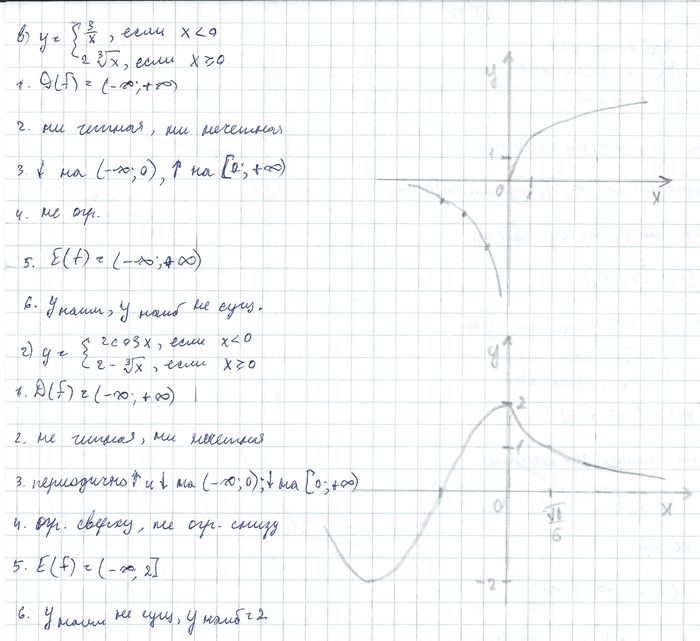 в) y = { 3/x, если x < 0
2∛x, если x ≥ 0
1. D(f) = (-∞; +∞)
2. ни четная, ни нечетная
3. ↓ на (-∞; 0), ↑ на [0; +∞)
4. не огр.
5. E(f) = (-∞; +∞)
6. y наим, y наиб не сущ.
y
1
0
1
x
г) y = { 2cosx, если x < 0
2 - ∛x, если x ≥ 0
1. D(f) = (-∞; +∞)
2. не четная, ни нечетная
3. периодично ↑ и ↓ на (-∞; 0); ↓ на [0; +∞)
4. огр. сверху, не огр. снизу
5. E(f) = (-∞, 2]
6. y наим не сущ, y наиб = 2
y
2
1
0
π/6
x
-2